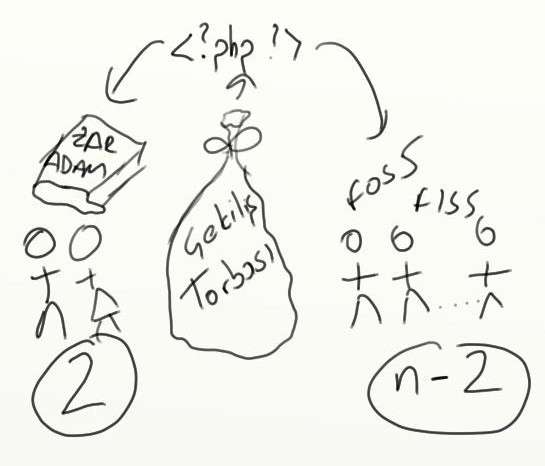 <?php ?>
ZAR
ADAM
Çekiliş
Torbası
foss
fıss
2
n-2